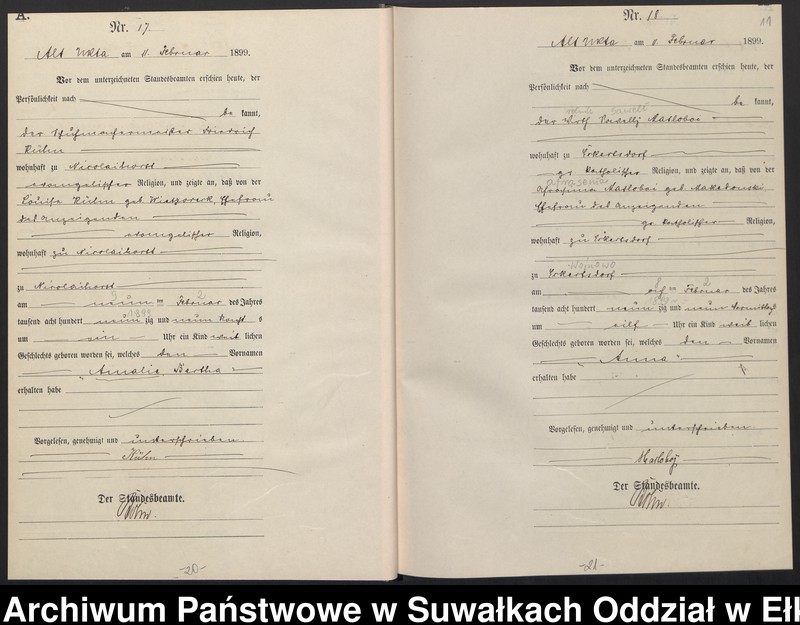 A.
Nr. 17.
Alt Ukta am 11. Februar 1899.
Vor dem unterzeichneten Standesbeamten erschien heute, der
Persönlichkeit nach
be kannt,
der
Kühn
wohnhaft zu Nicolaihorst
evangelischer Religion, und zeigte an, daß von der
Louise Kühn geb. Ehefrau
des Anzeigenden
evangelischer Religion,
wohnhaft zu Nicolaihorst
zu Nicolaihorst
am neun ten Februar des Jahres
tausend acht hundert neun zig und neun
1899
um ein Uhr ein Kind weib lichen
Geschlechts geboren worden sei, welches den Vornamen
Amalie Bertha
erhalten habe
Vorgelesen, genehmigt und unterschrieben
Kühn
Der Standesbeamte.
-20-
Nr. 18.
11
Alt Ukta am 11. Februar 1899.
Vor dem unterzeichneten Standesbeamten erschien heute, der
Persönlichkeit nach
be kannt,
der Wirth
wohnhaft zu Eckertsdorf
gr. katholischer Religion, und zeigte an, daß von der
geb.
Ehefrau des Anzeigenden
gr. katholischer Religion,
wohnhaft zu Eckertsdorf
Wojnowo
zu Eckertsdorf
am Februar des Jahres
1899
tausend acht hundert neun zig und neun Vormittags
um elf Uhr ein Kind weib lichen
Geschlechts geboren worden sei, welches den Vornamen
Anna
erhalten habe
Vorgelesen, genehmigt und unterschrieben
Der Standesbeamte.
-21-
Archiwum Państwowe w Suwałkach Oddział w Ełk